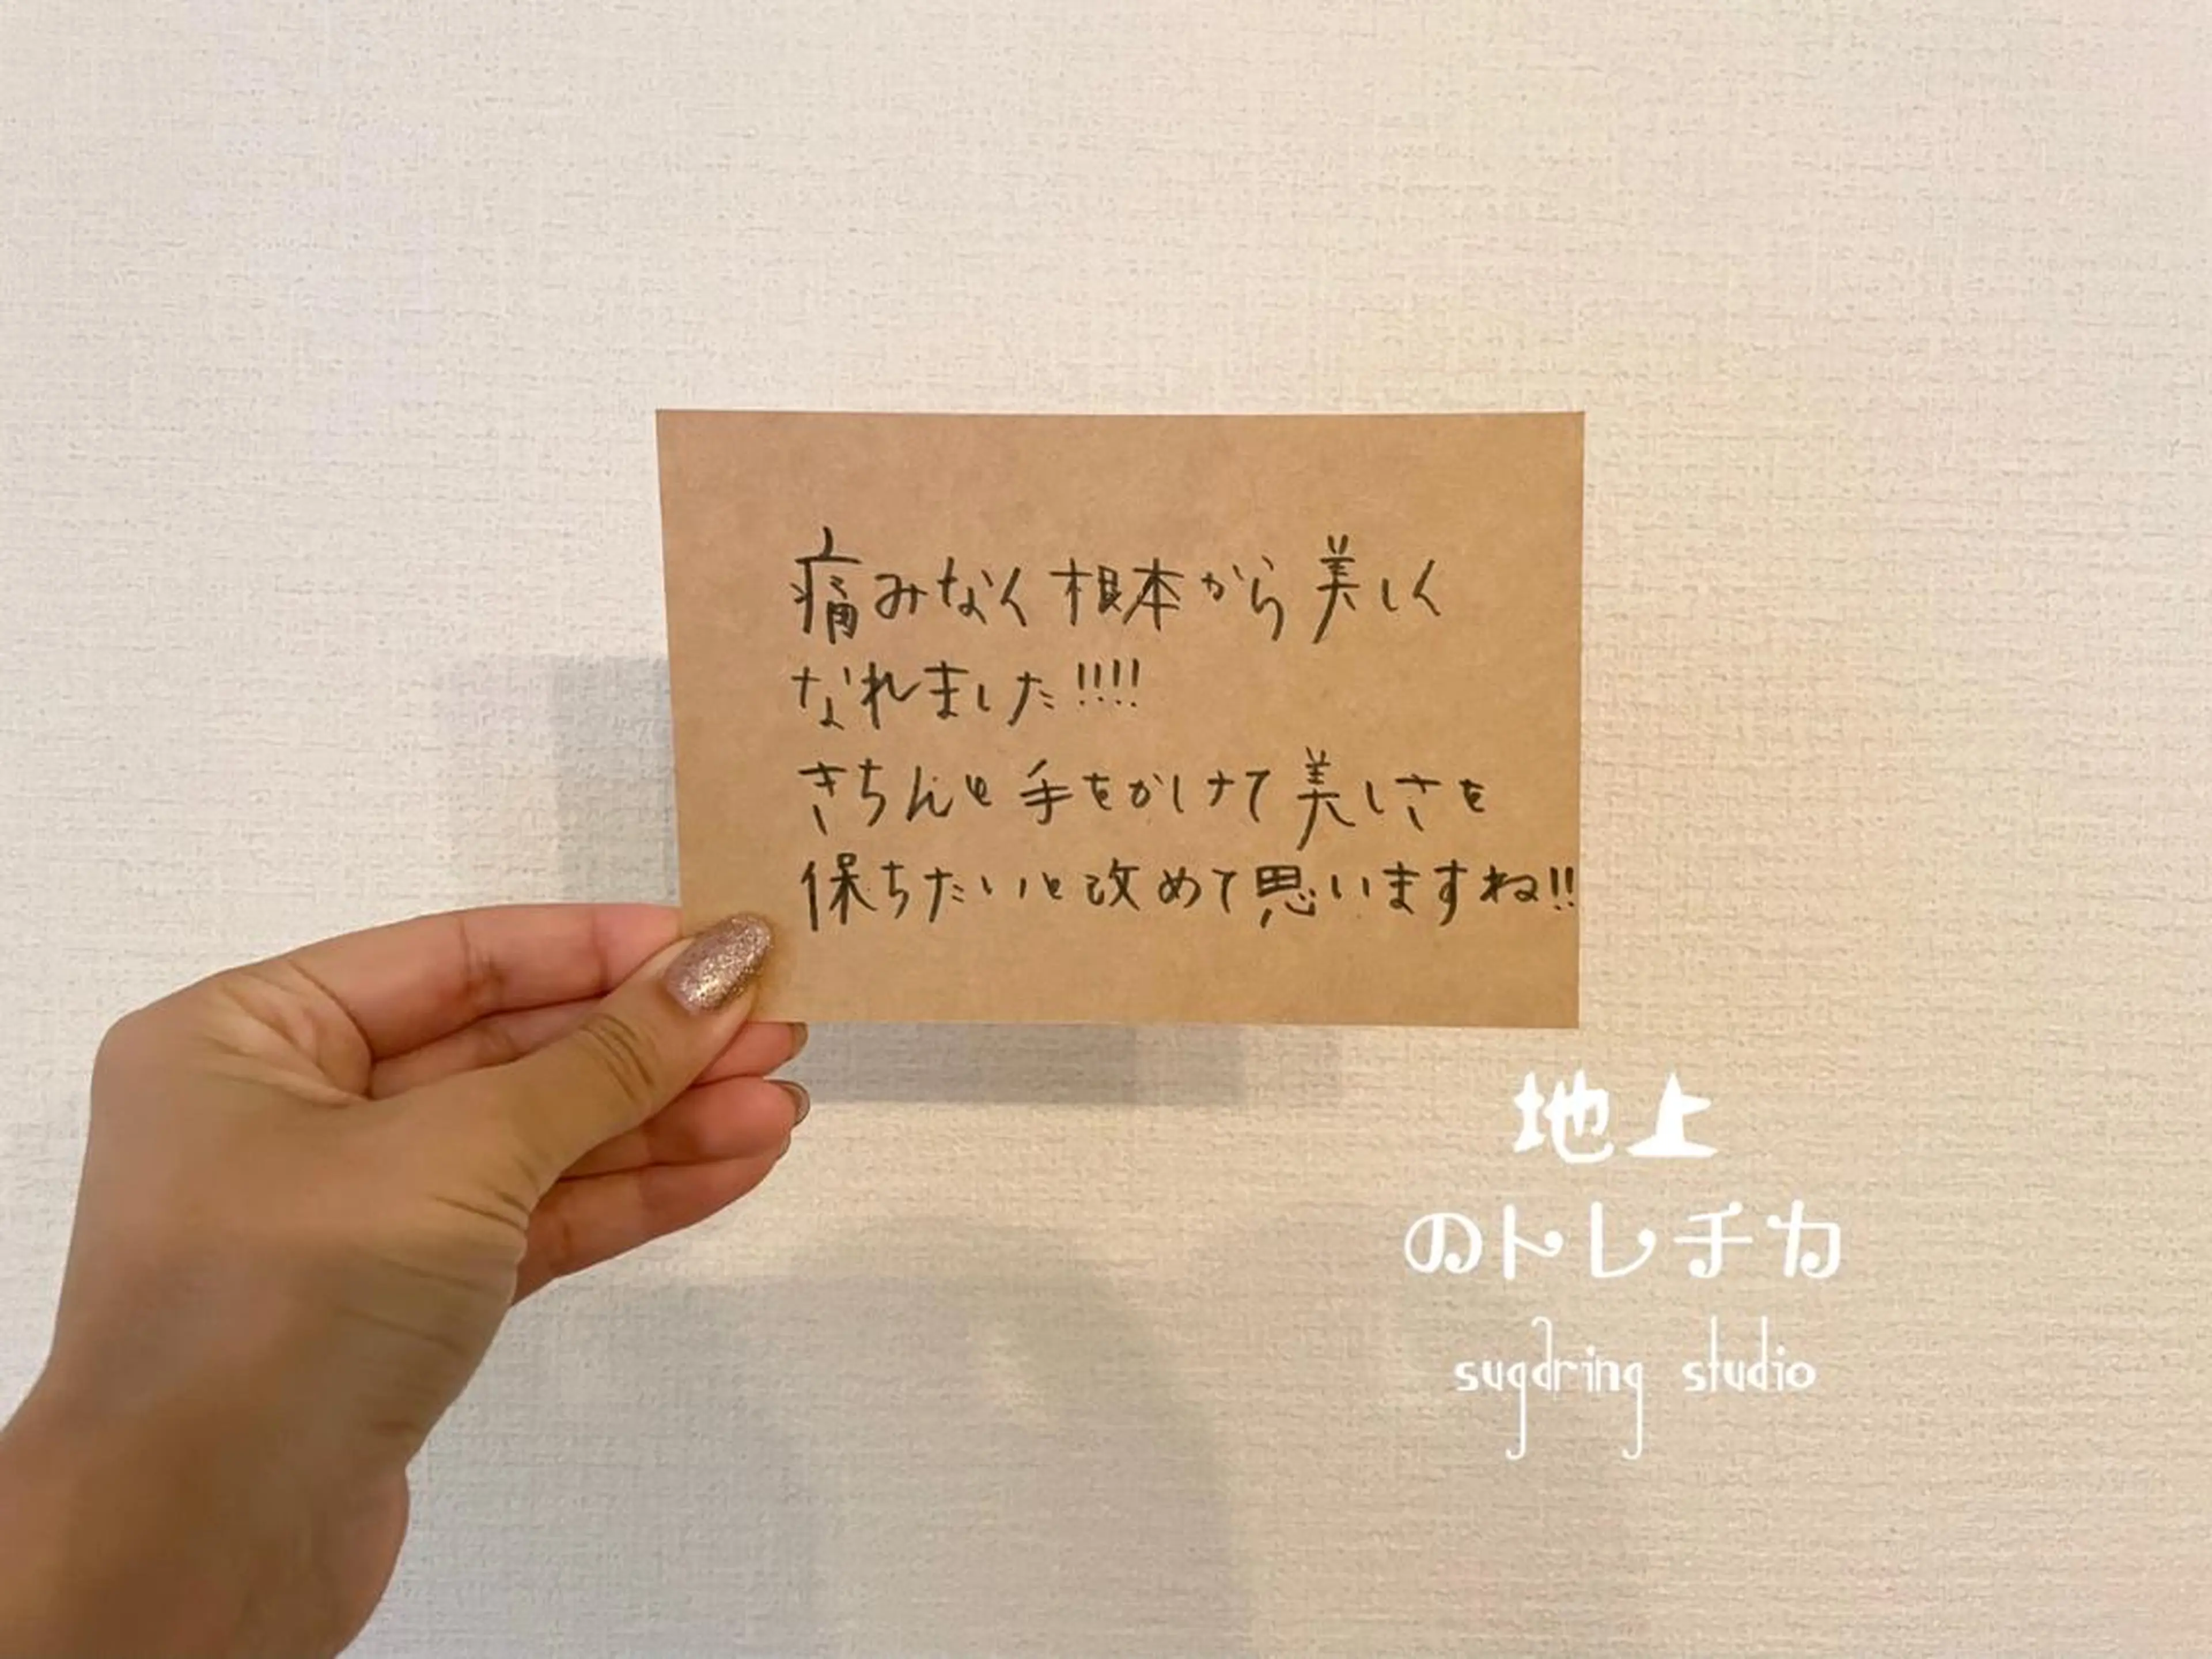 痛みなく根本から美しく
なれました!!!!
きちんと手をかけて美しさを
保ちたいと改めて思いますね!!
地上
のトレチカ
sugaring studio